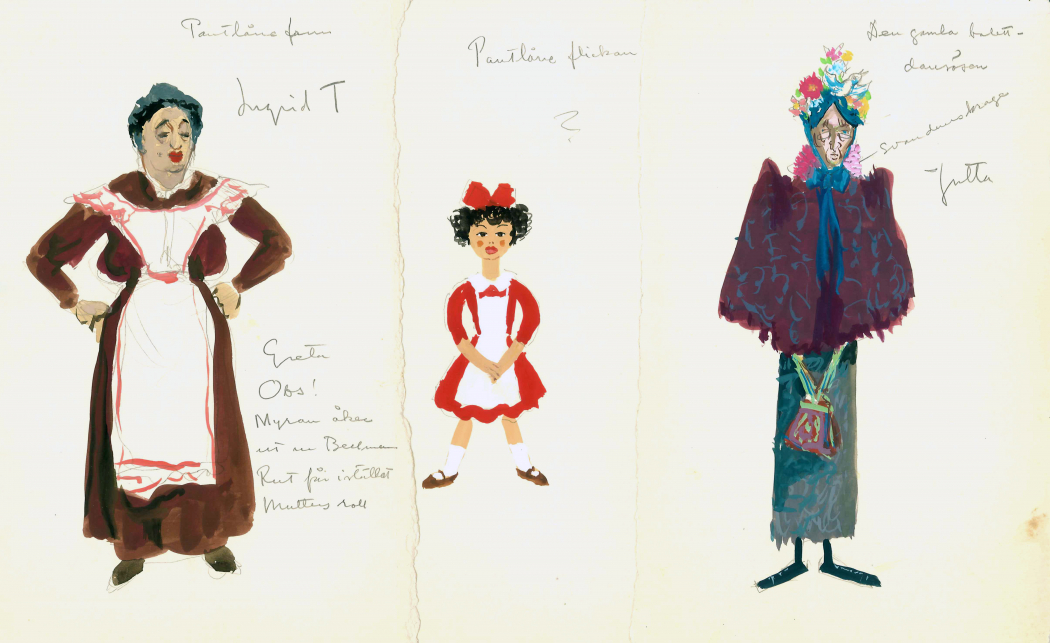 Pantlånefrun
Ingrid T
Greta
Obs!
Myran åker
ut ur Beckman
Rut får istället
Mutters roll
Pantlåneflickan
?
Den gamla balett-
dansösen
svandunskrage
Jutta